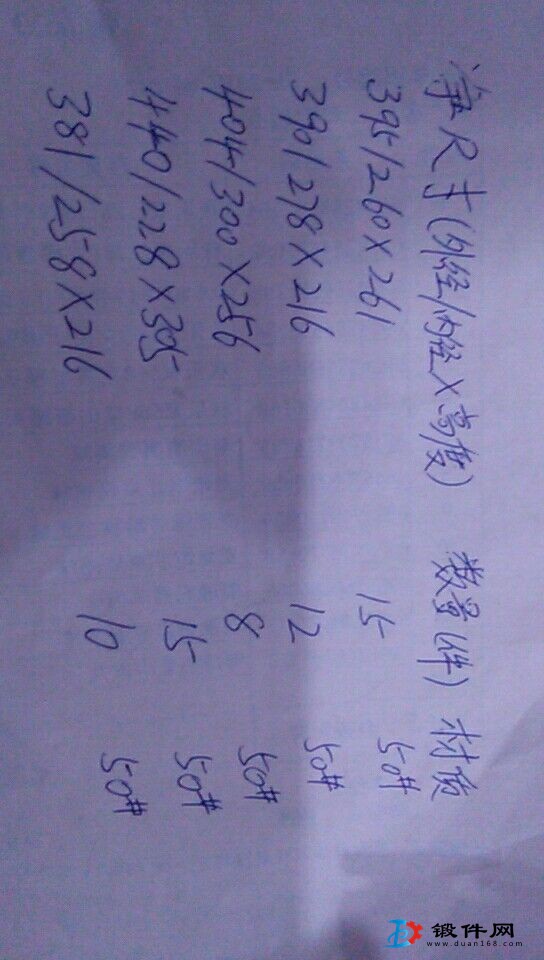 净尺寸(外径/内径X高度) 数量(件) 材质
395/260X261 15 50#
390/278X216 12 50#
405/300X256 8 50#
440/228X395 15 50#
381/258X216 10 50#
锻件网
www.duan168.com